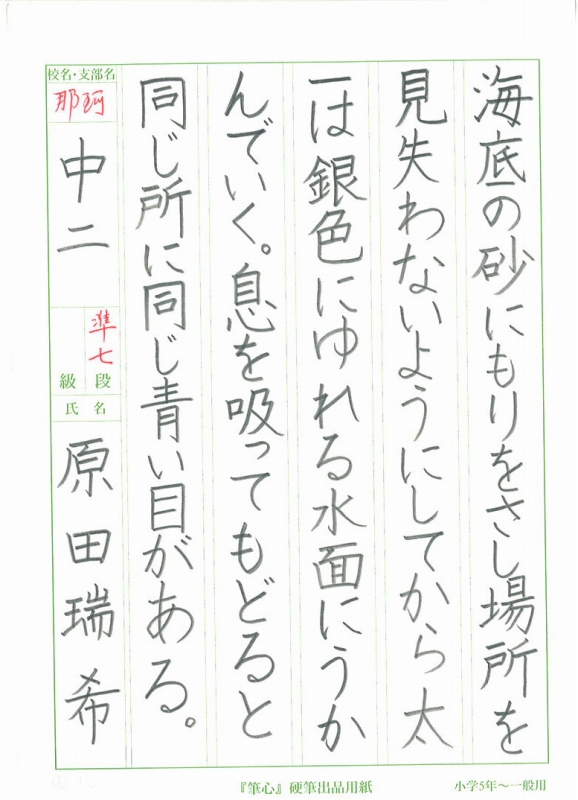 海底の砂にもりをさし場所を
見失わないようにしてから太
一は銀色にゆれる水面にうか
んでいく。息を吸ってもどると
同じ所に同じ青い目がある。
校名・支部名
那珂
中二
準七
級段
氏名
原田瑞希
『筆心』硬筆出品用紙
小学5年〜一般用